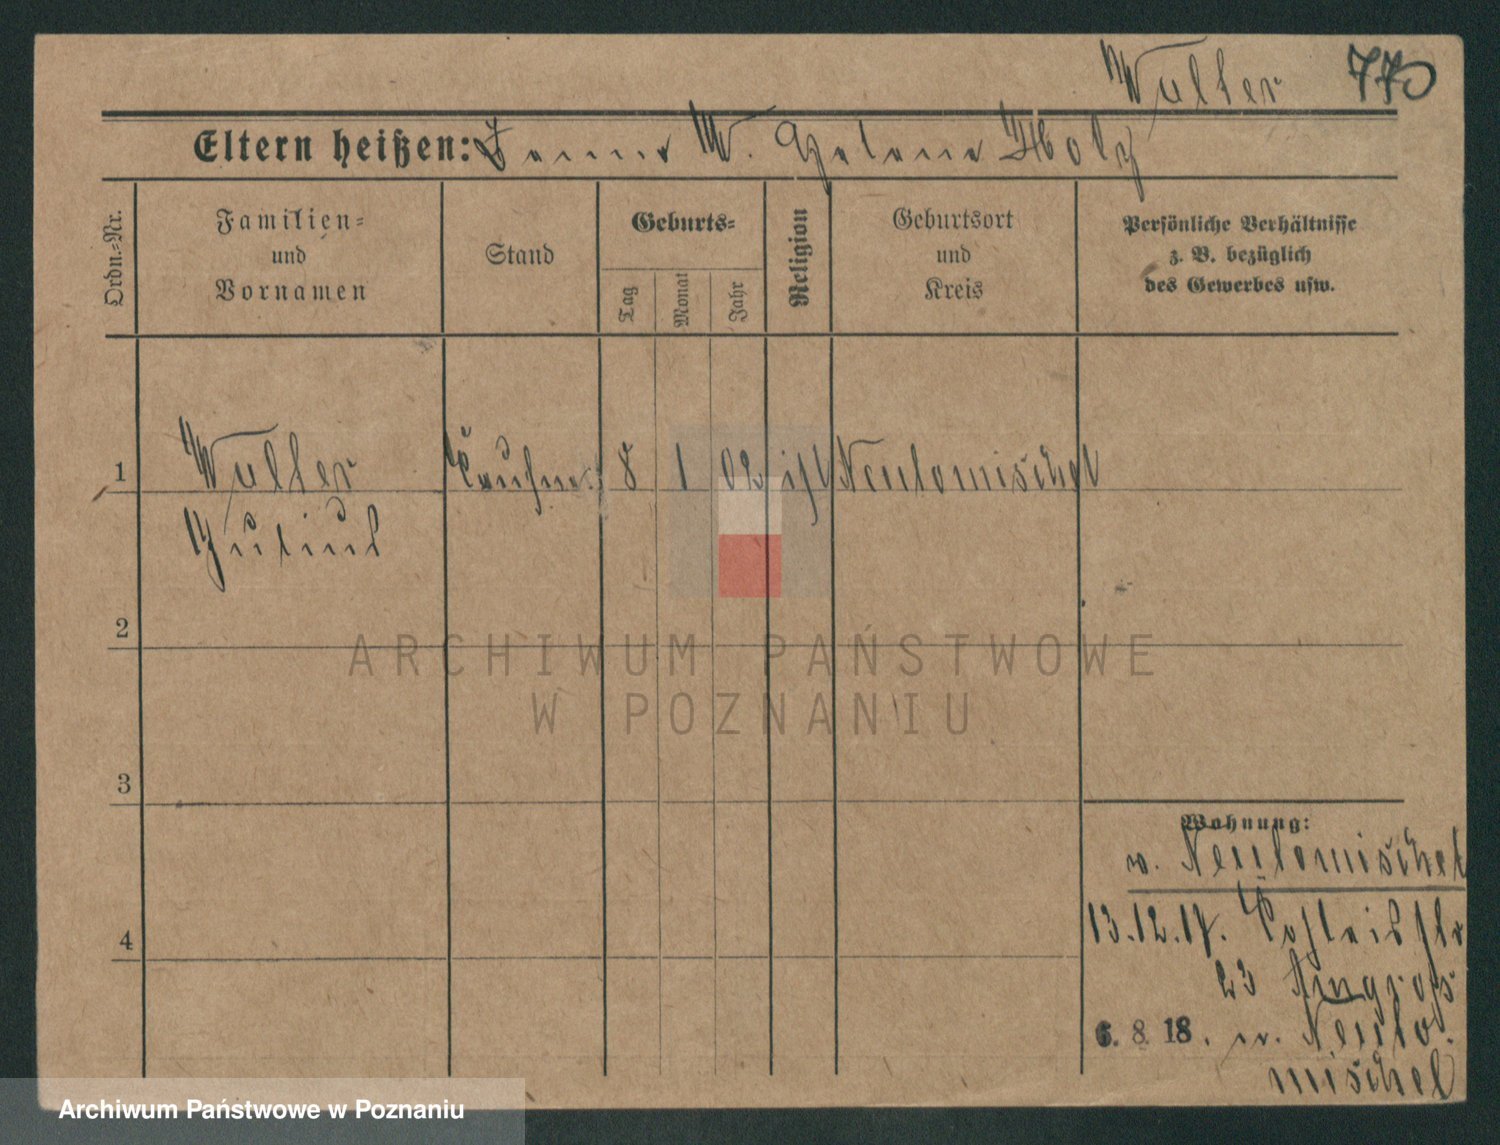 Wulter 770
Eltern heißen: W. Helene Holz
Ordn.-Nr.
Familien-
und
Vornamen
Stand
Geburts-
Tag
Monat
Jahr
Religion
Geburtsort
und
Kreis
Persönliche Verhältnisse
z. B. bezüglich
des Gewerbes usw.
1 Kaufm. 8 1 02 isr Neutomischel
Julius
2
3
4
Wohnung:
v. Neutomischel
13.12.17.
23
6. 8. 18. n. Neuto-
mischel
ARCHIWUM PAŃSTWOWE
W POZNANIU
Archiwum Państwowe w Poznaniu